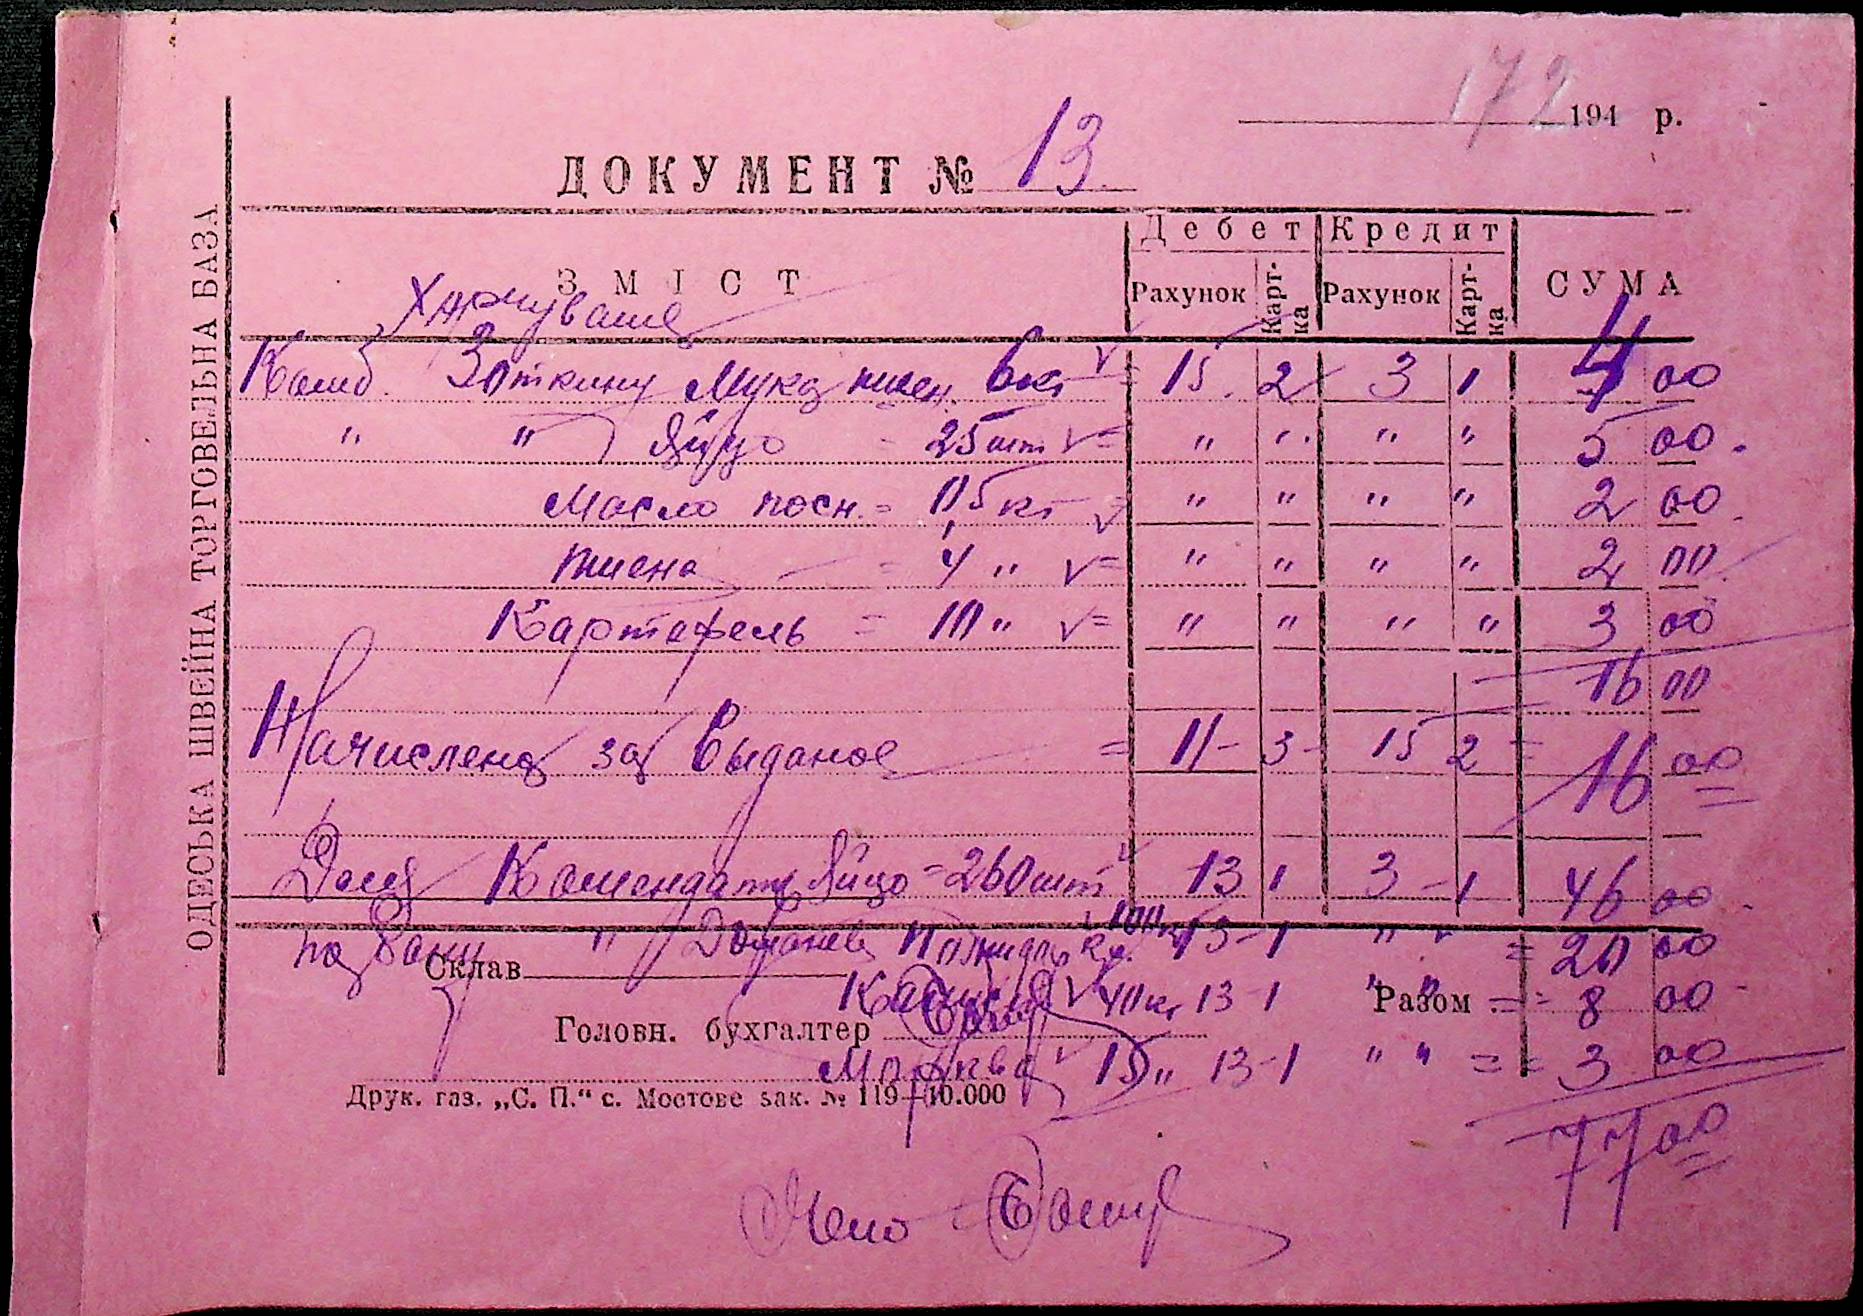 172 194 р.
ДОКУМЕНТ № 13
ОДЕСЬКА ШВЕЙНА ТОРГОВЕЛЬНА БАЗА
Дебет Кредит
ЗМІСТ Рахунок Карт-ка Рахунок Карт-ка СУМА
Харчування
Мука пшен. 6 кг 15 2 3 1 4 00
" " Яйцо = 25 шт = " " " " 5 00
Масло посн. = 0,5 кг = " " " " 2 00
Пшена = 4 " = " " " " 2 00
Картофель = 10 " = " " " " 3 00
16 00
Начислено за Выданое = 11 - 3 - 15 2 = 16 00
Для Комендат. Яйцо = 260 шт 13 1 3 - 1 46 00
" 100 кг 13 - 1 " " = 20 00
Склав
40 кг 13 - 1 " " = 8 00
Разом
Головн. бухгалтер
Морква 15 " 13 - 1 " " = 3 00
Друк. газ. „С. П.“ с. Мостове зак. № 119—10.000
77 00